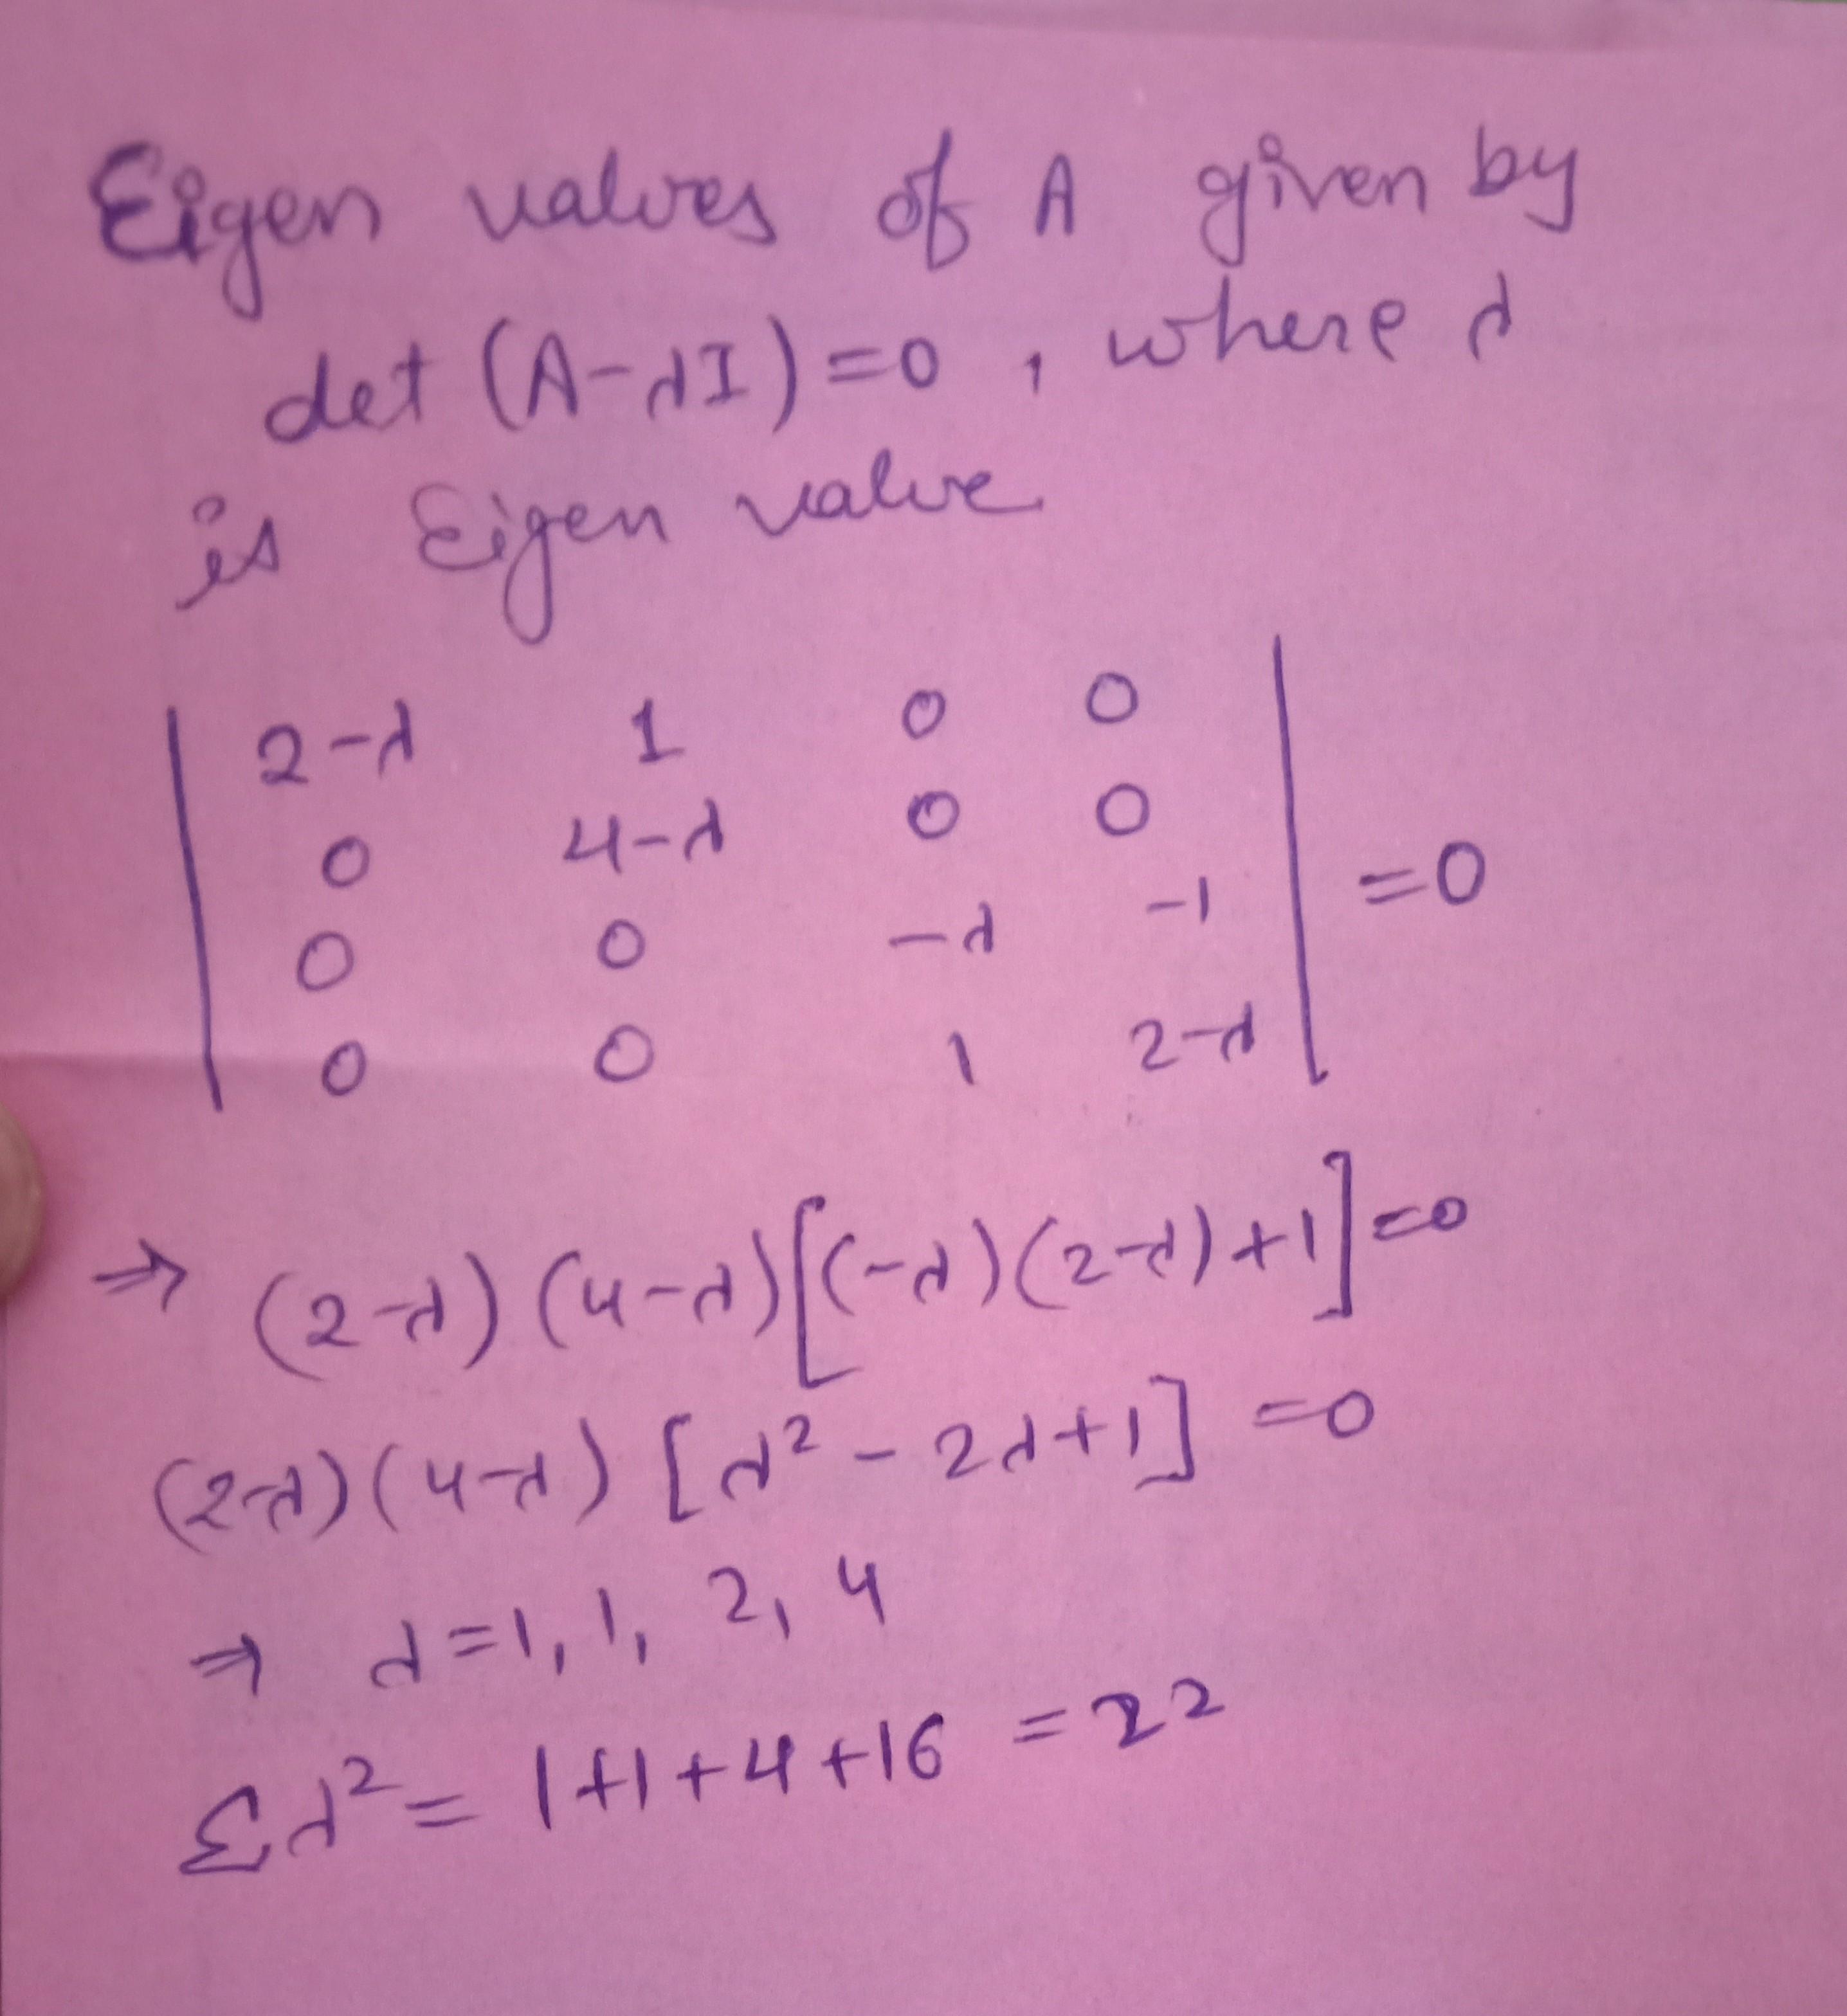 Eigen values of A given by
det (A-λI)=0 , where λ
is Eigen value
| 2-λ 1 0 0 |
| 0 4-λ 0 0 |
| 0 0 -λ -1 | =0
| 0 0 1 2-λ |
⇒ (2-λ) (4-λ)[(-λ)(2-λ)+1]=0
(2-λ)(4-λ) [λ² - 2λ+1] =0
⇒ λ=1, 1, 2, 4
Σλ² = 1+1+4+16 = 22